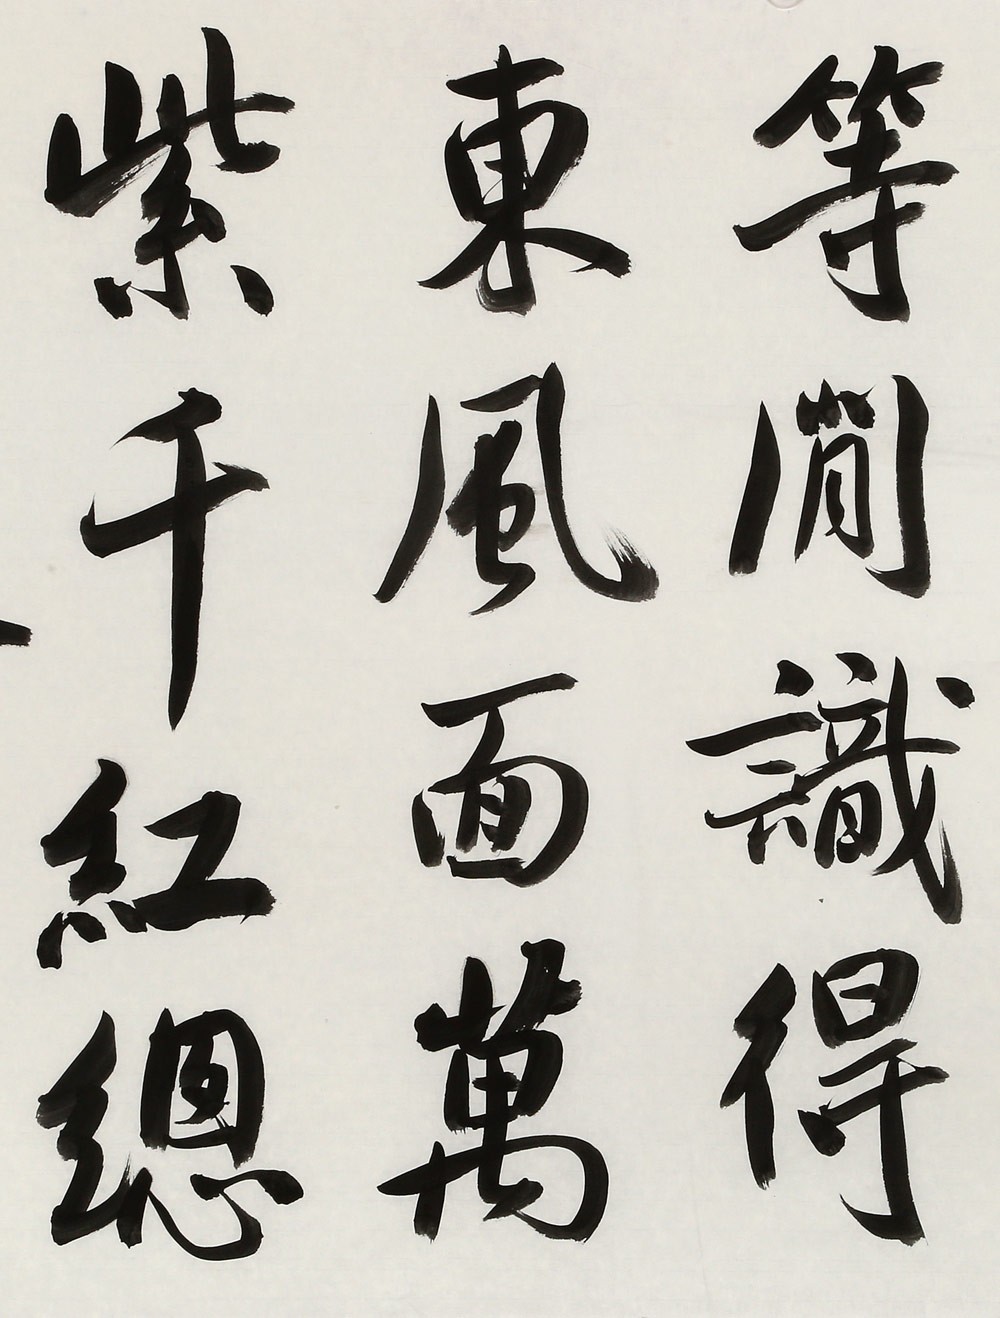 等閒識得
東風面萬
紫千紅總